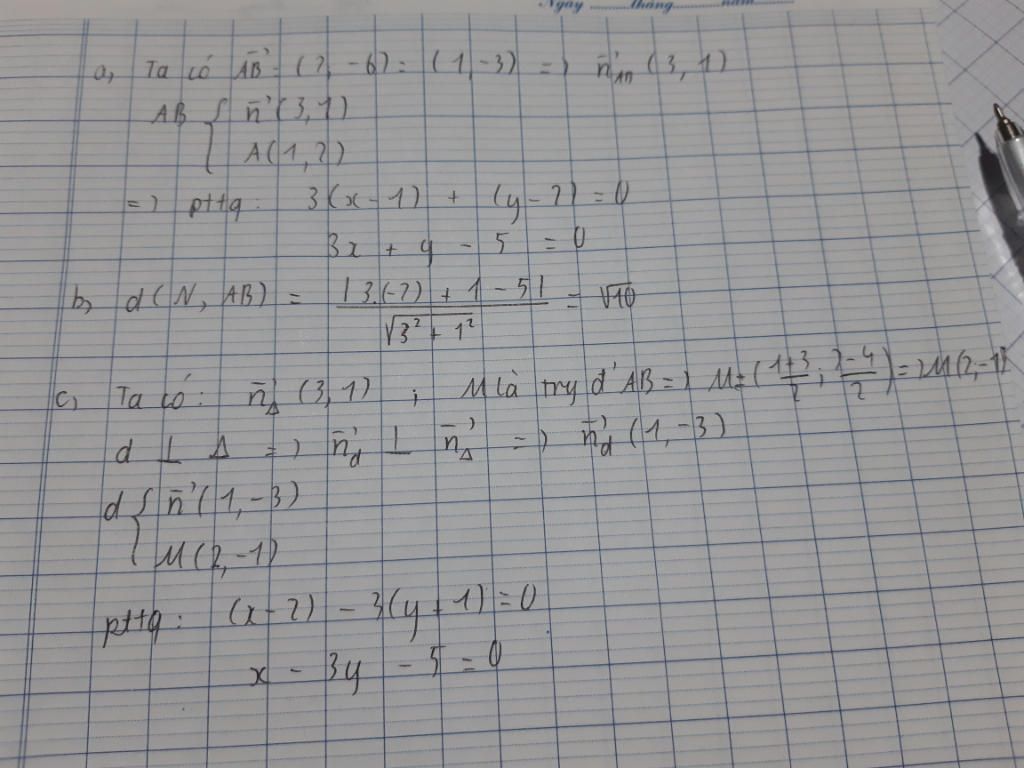 Ngày ........ tháng ........ năm ........
a, Ta có AB⃗ = (2, -6) = (1, -3) => n⃗AB (3, 1)
AB { n⃗ (3, 1)
A(1, 2)
=> pttq: 3(x - 1) + (y - 2) = 0
3x + y - 5 = 0
b, d(N, AB) = |3.(-2) + 1 - 5| / √(3² + 1²) = √10
c, Ta có: n⃗Δ (3, 1) ; M là trg đ' AB => M = ((1+3)/2 ; (2-4)/2) => M(2, -1)
d ⊥ Δ => n⃗d ⊥ n⃗Δ => n⃗d (1, -3)
d { n⃗ (1, -3)
M(2, -1)
pttq: (x - 2) - 3(y + 1) = 0
x - 3y - 5 = 0